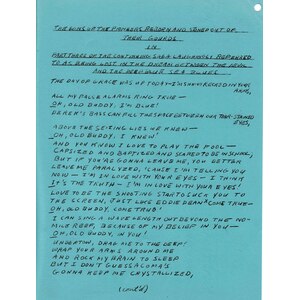 THE SONS OF THE PIONEERS REBORN AND STONED OUT OF
THEIR GOURDS
IN
PART THREE OF THE CONTINUING SAGA LAUGHINGLY REFERRED
TO AS BEING LOST IN THE DISTAL BETWEEN THE DEVIL
AND THE DEEP BLUE SEA BLUES
THE DAY OF GRACE WAS UP TODAY – I'M SHIPWRECKED IN YOUR
ARMS,
ALL MY FALSE ALARMS RING TRUE –
OH, OLD BUDDY, I'M BLUE!
DEREK'S BASS CAN FILL THE SPACE BETWEEN OUR TEAR-STAINED
EYES,
ABOVE THE SETTING LIES WE KNEW –
OH, OLD BUDDY, I KNEW!
AND YOU KNOW I LOVE TO PLAY THE FOOL –
CAPSIZED AND BAPTIZED AND SCARED TO BE IN SHINE,
BUT IF YOU'RE GONNA LEAVE ME, YOU BETTER
LEAVE ME PARALYZED, 'CAUSE I'M TELLING YOU
NOW – I'M IN LOVE WITH YOUR EYES – I THINK
IT'S THE TRUTH – I'M IN LOVE WITH YOUR EYES!
LOVE TO BE THE SHOOTING STAR TO SUCK YOU TO
THE SCREEN, JUST LIKE EDDIE DEAN COME TRUE –
OH, OLD BUDDY, COME TRUE!
I CAN SING A WAVE LENGTH OUT BEYOND THE NO-
MILE REEF, BECAUSE OF MY BELIEF IN YOU –
OH, OLD BUDDY, IN YOU!
UNDERTOW, DRAG ME TO THE DEEP!
WRAP YOUR ARMS AROUND ME
AND ROCK MY BRAIN TO SLEEP
BUT I DON'T GUESS ALOMA'S
GONNA KEEP ME CRYSTALLIZED,
(cont'd)